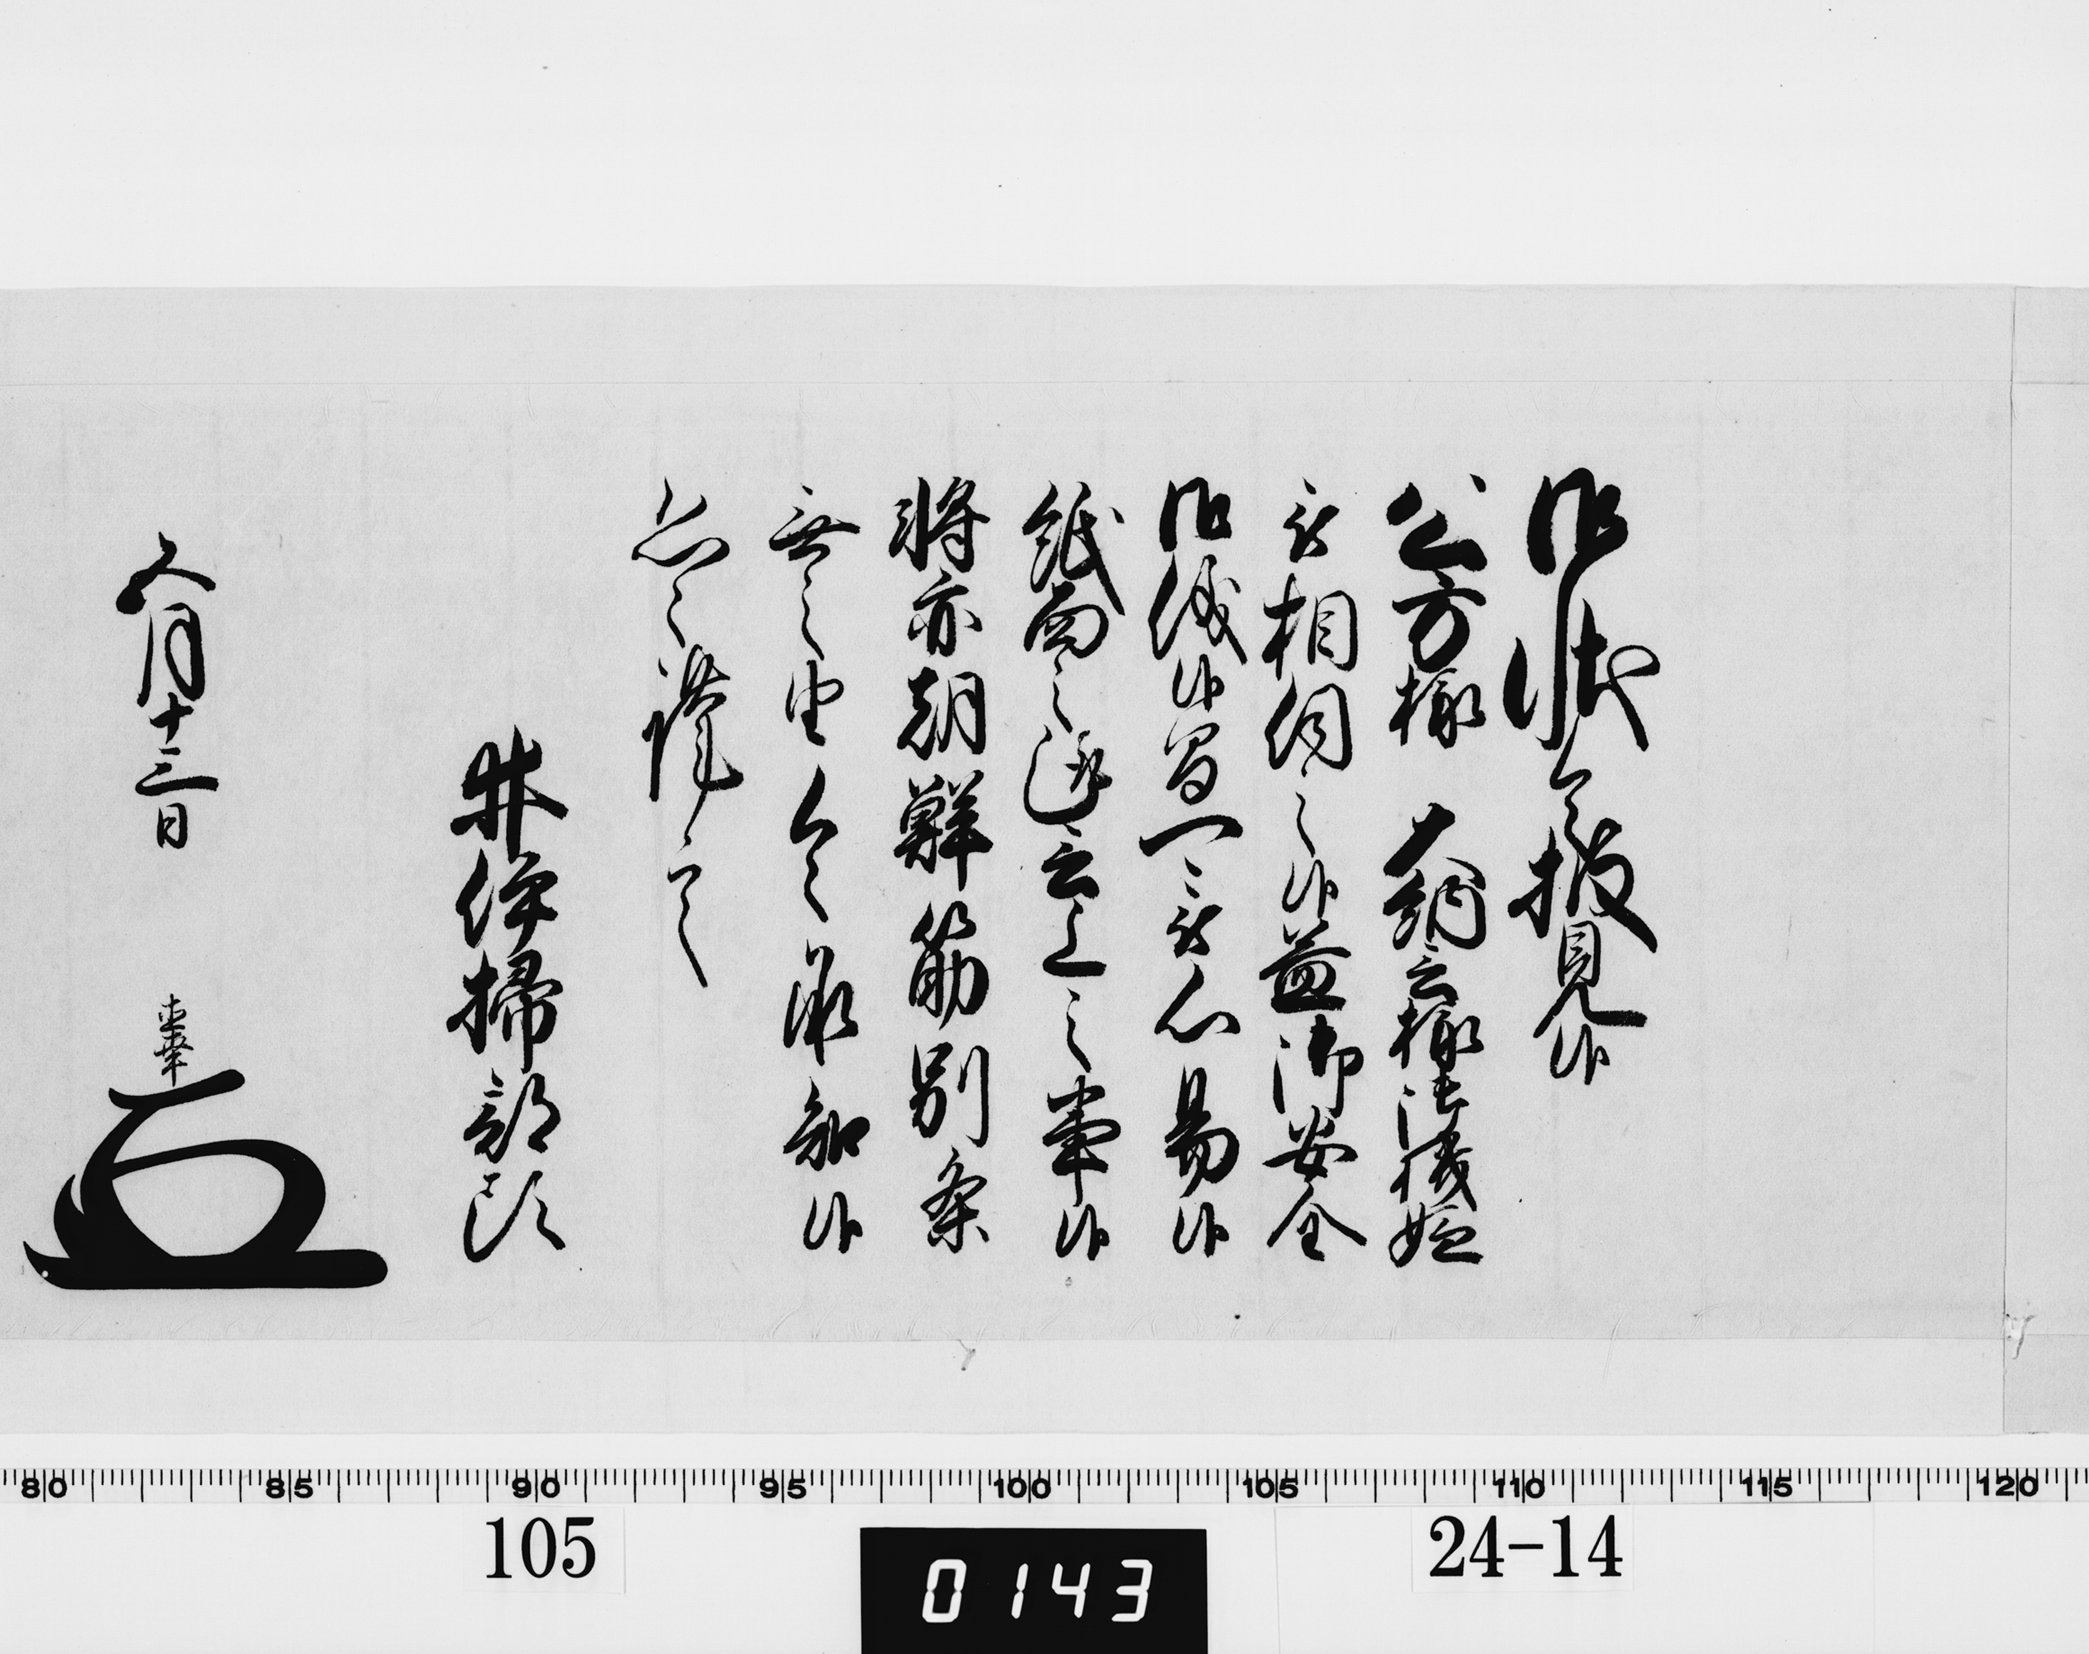 御状令披見候
公方様 大納言様御機嫌
被相伺之候益御安全
御儀候間可被心易候
紙面之趣言上之事候
将亦朝鮮筋別条
無之由令承知候
恐々謹言
井伊掃部頭
五月十三日 直幸
80 85 90 95 100 105 110 115 120
105
0143
24-14